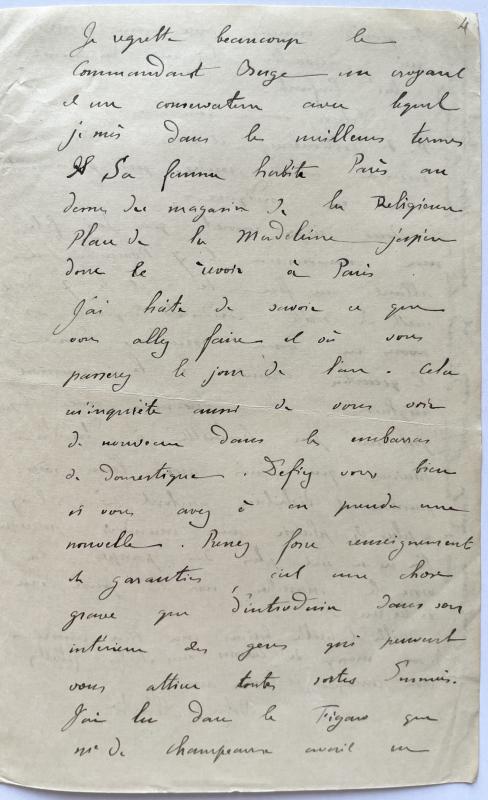 4
Je regrette beaucoup le
Commandant un croyant
et un conservateur avec lequel
je m'étais dans les meilleurs termes
Sa femme habite Paris au
dessus des magasins de la Religieuse
Place de la Madeleine j'espère
donc le revoir à Paris.
J'ai hâte de savoir ce que
vous allez faire et où vous
passerez le jour de l'an. Cela
m'inquiète aussi de vous voir
de nouveau dans les embarras
de domestique. Défiez vous bien
si vous avez à en prendre une
nouvelle. Prenez force renseignements
et garanties, c'est une chose
grave que d'introduire dans son
intérieur des gens qui peuvent
vous attirer toutes sortes d'ennuis.
J'ai lu dans le Figaro que
Mr de Champeaux avait un